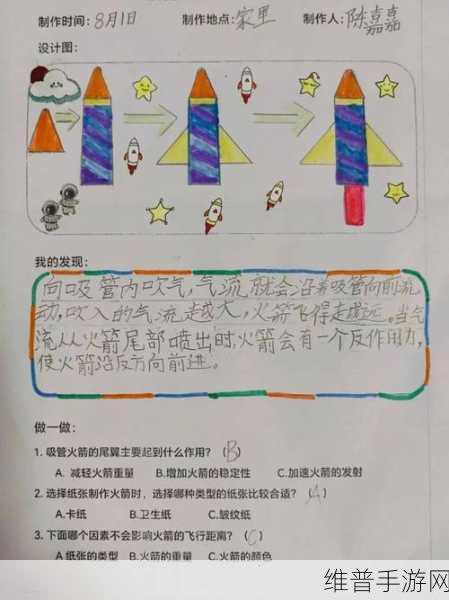 制作时间：8月1日 制作地点：家里 制作人：陈嘉嘉
设计图：
我的发现：
向吸管内吹气，气流就会沿着吸管向前流
动，吹入的气流越大，火箭飞得走越远。当气
流从从火箭尾部喷出时，火箭会有一个反作用力，
使火箭沿反方向前进。
做一做：
1. 吸管火箭的尾翼主要起到什么作用？（B）
A. 减轻火箭重量 B.增加火箭的稳定性 C.加速火箭的发射
2. 选择纸张制作火箭时，选择哪种类型的纸张比较合适？（A）
A.卡纸 B.卫生纸 C.皱纹纸
3. 下面哪个因素不会影响火箭的飞行距离？（C）
A 纸张的类型 B.火箭的重量 C.火箭的颜色
维普手游网